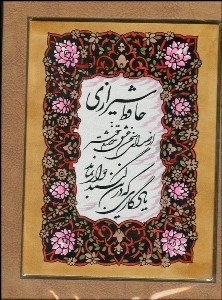 حافظ شیرازی
از صدای سخن عشق ندیدم خوشتر
یادگاری که در این گنبد دوار بماند